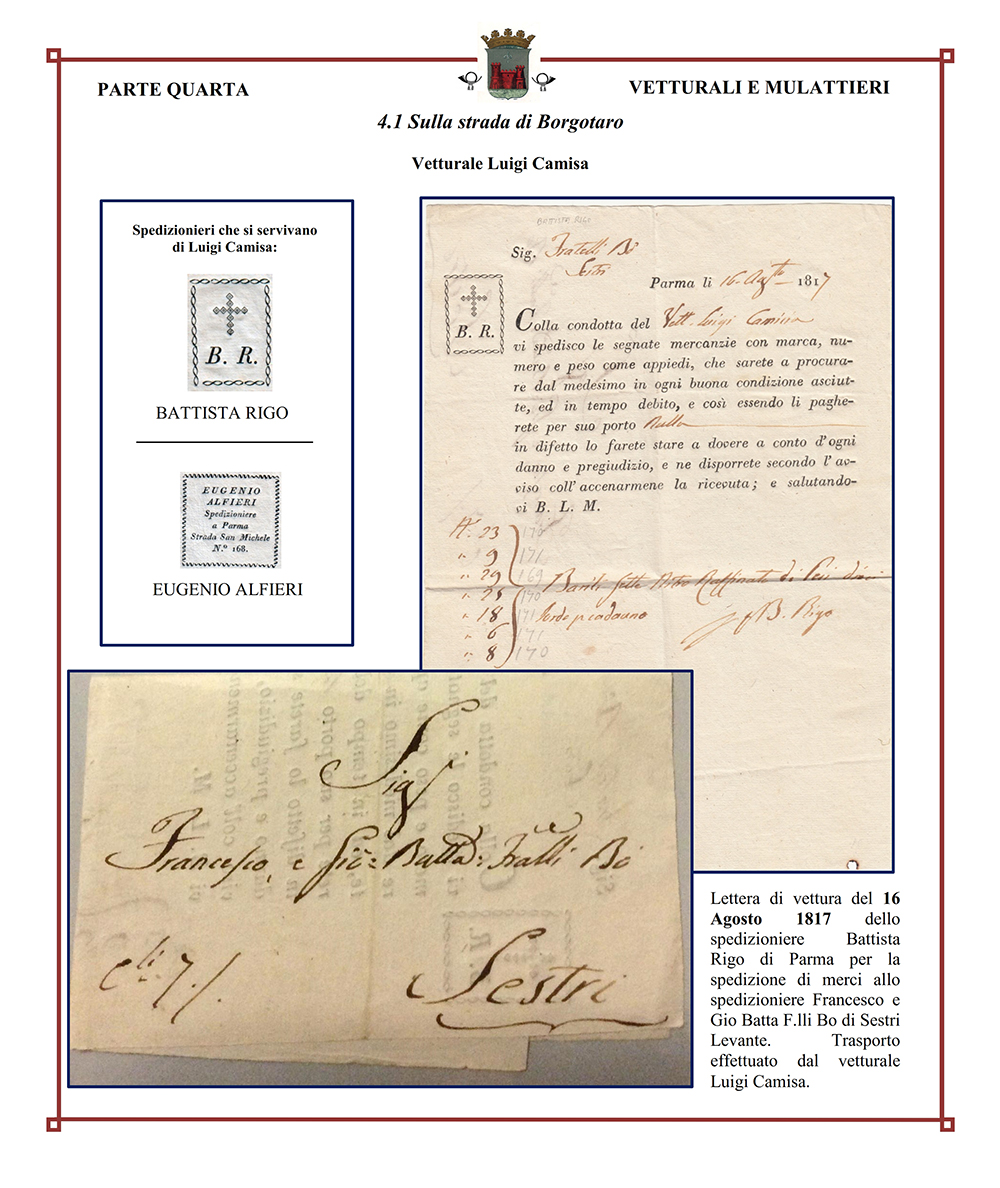 PARTE QUARTA
VETTURALI E MULATTIERI
4.1 Sulla strada di Borgotaro
Vetturale Luigi Camisa
Spedizionieri che si servivano
di Luigi Camisa:
B. R.
BATTISTA RIGO
EUGENIO
ALFIERI
Spedizioniere
a Parma
Strada San Michele
N.º 168.
EUGENIO ALFIERI
BATTISTA RIGO
Sig. Fratelli Bò
Sestri
Parma li 16 Agto 1817
B. R.
Colla condotta del Vett. Luigi Camisa
vi spedisco le segnate mercanzie con marca, nu-
mero e peso come appiedi, che sarete a procura-
re dal medesimo in ogni buona condizione asciut-
te, ed in tempo debito, e così essendo li paghe-
rete per suo porto Nulla
in difetto lo farete stare a dovere a conto d'ogni
danno e pregiudizio, e ne disporrete secondo l'av-
viso coll'accenarmene la ricevuta; e salutando-
vi B. L. M.
N. 23 170
" 9 171
" 29 169
Barili Sette Nitro Raffinato di Pesi
" 25 170
" 18 171 lordo p cadauno
B. Rigo
" 6 171
" 8 170
Sig
Francesco, e Gio: Batta: Fratelli Bò
Cli 7./.
Sestri
Lettera di vettura del 16
Agosto 1817 dello
spedizioniere Battista
Rigo di Parma per la
spedizione di merci allo
spedizioniere Francesco e
Gio Batta F.lli Bo di Sestri
Levante. Trasporto
effettuato dal vetturale
Luigi Camisa.